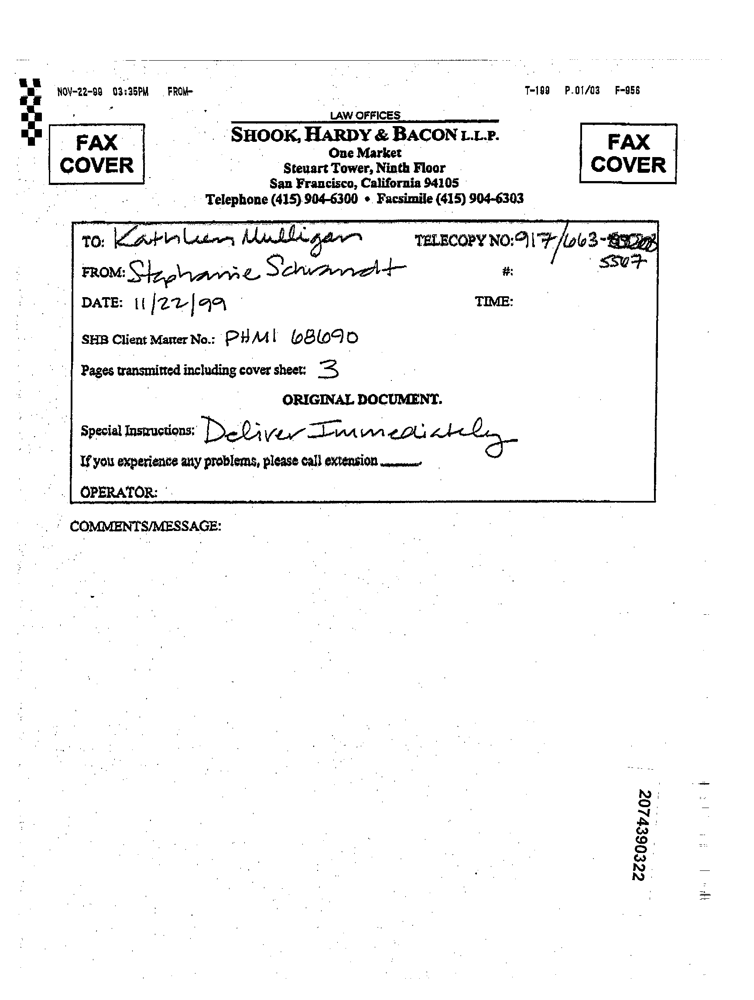 NOV-22-99 03:35PM FROM- T-199 P.01/03 F-956
LAW OFFICES
FAX COVER
SHOOK, HARDY & BACON L.L.P.
One Market
Steuart Tower, Ninth Floor
San Francisco, California 94105
Telephone (415) 904-6300 • Facsimile (415) 904-6303
FAX COVER
TO: Kathleen Mulligan TELECOPY NO: 917/663-
5507
FROM: Stephanie Schrandt #:
DATE: 11/22/99 TIME:
SHB Client Matter No.: PHMI 68690
Pages transmitted including cover sheet: 3
ORIGINAL DOCUMENT.
Special Instructions: Deliver Immediately
If you experience any problems, please call extension
OPERATOR:
COMMENTS/MESSAGE:
2074390322